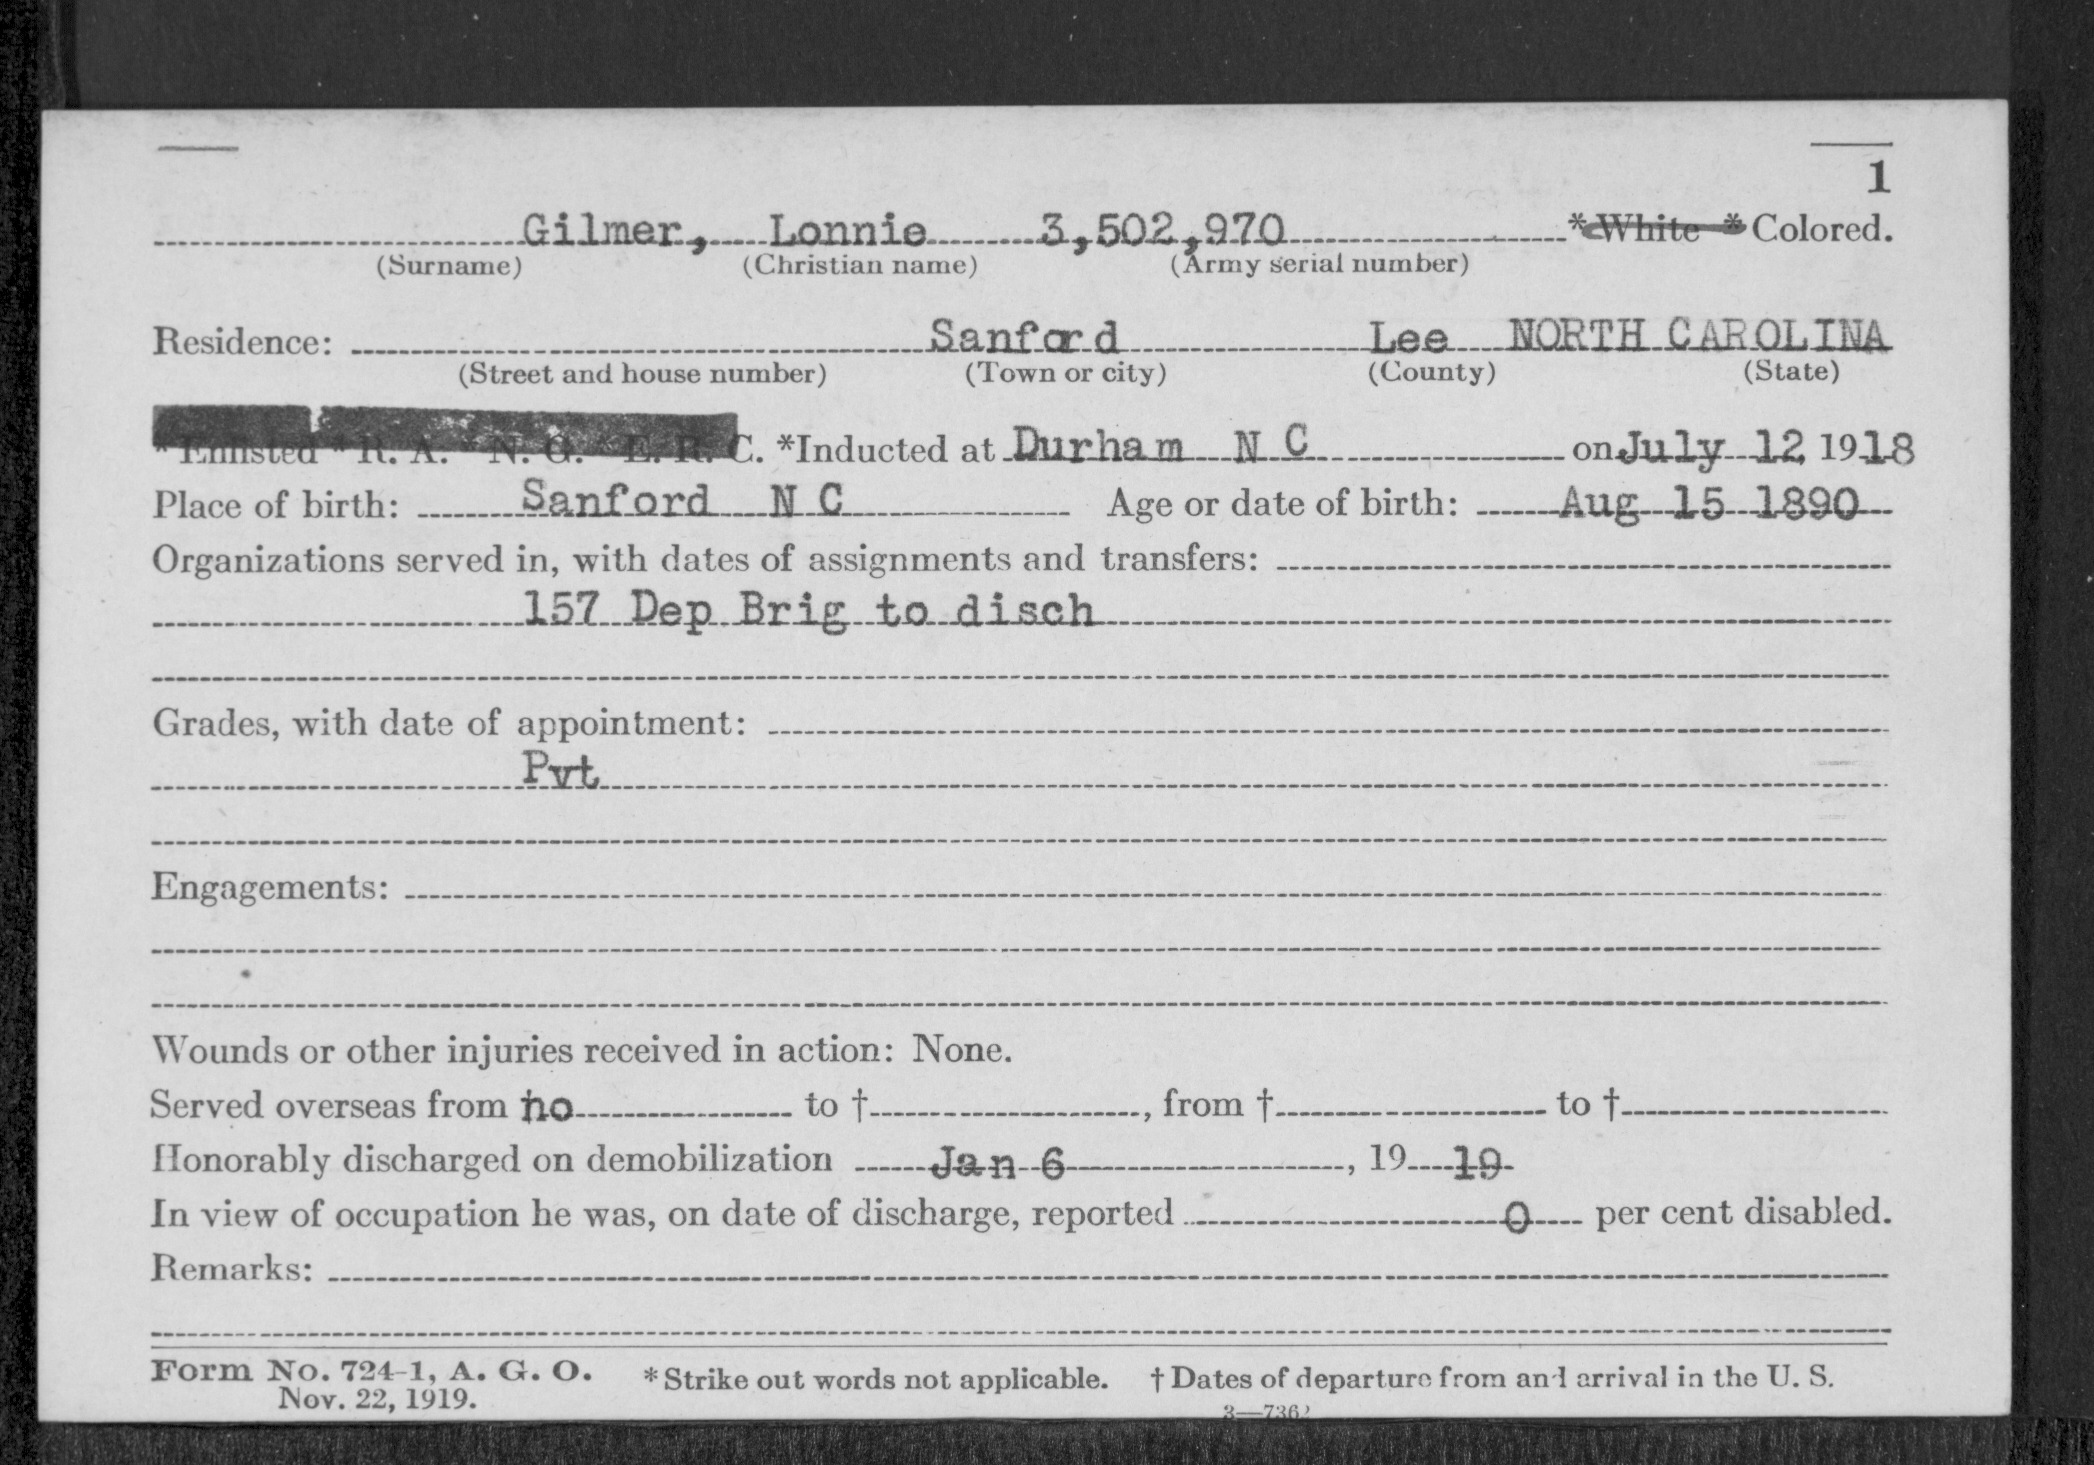 1
Gilmer, Lonnie 3,502,970 *White * Colored.
(Surname) (Christian name) (Army serial number)
Residence: Sanford Lee NORTH CAROLINA
(Street and house number) (Town or city) (County) (State)
* Enlisted * R. A. * N. G. * E. R. C. *Inducted at Durham N C on July 12, 1918
Place of birth: Sanford N C Age or date of birth: Aug 15 1890
Organizations served in, with dates of assignments and transfers:
157 Dep Brig to disch
Grades, with date of appointment:
Pvt
Engagements:
Wounds or other injuries received in action: None.
Served overseas from no to †, from † to †
Honorably discharged on demobilization Jan 6, 19 19
In view of occupation he was, on date of discharge, reported 0 per cent disabled.
Remarks:
Form No. 724-1, A. G. O. * Strike out words not applicable. † Dates of departure from and arrival in the U. S.
Nov. 22, 1919.